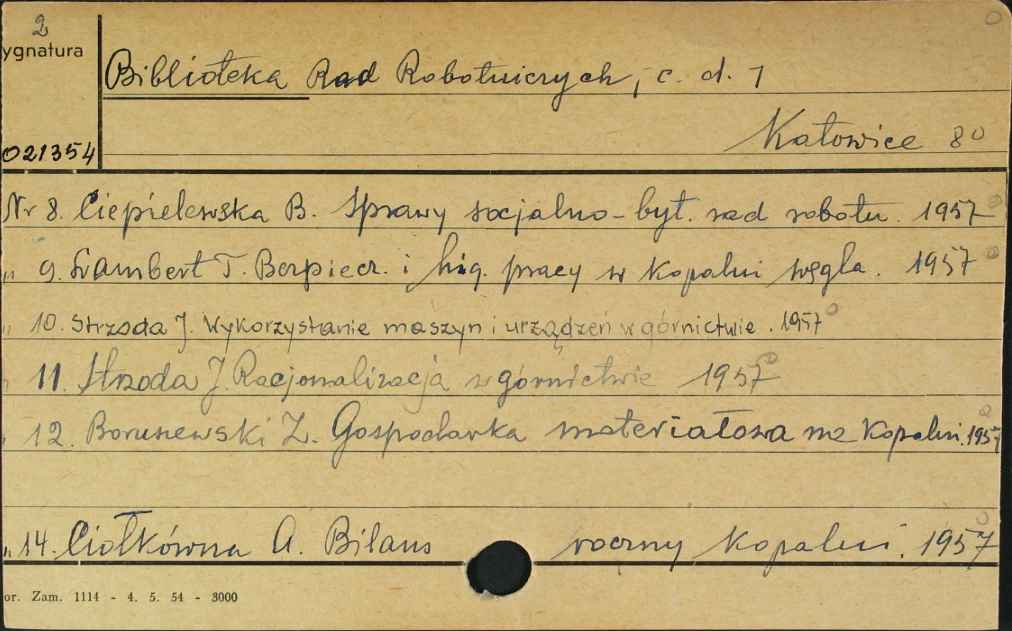 2
ygnatura
Biblioteka Rad Robotniczych, c. d. 1
Katowice 8°
021354
Nr 8. Ciepielewska B. Sprawy socjalno-byt. rad robotn. 1957
„ 9. Lambert T. Bezpiecz. i hig. pracy w kopalni węgla. 1957
„ 10. Strzoda J. Wykorzystanie maszyn i urządzeń w górnictwie. 1957
„ 11. Strzoda J. Racjonalizacja w górnictwie 1957
„ 12. Boruszewski Z. Gospodarka materiałowa na kopalni. 1957
„ 14. Ciołkówna A. Bilans roczny kopalni. 1957
or. Zam. 1114 - 4. 5. 54 - 3000